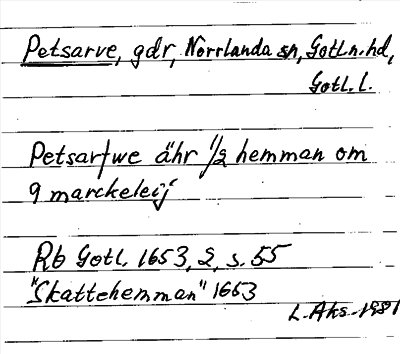 Petsarve, gdr, Norrlanda sn, Gotl.n.hd,
Gotl.l.
Petsarfwe ähr 1/2 hemman om
9 marckeleij
Rb Gotl. 1653, 2, s. 55
"Skattehemman" 1653
L. Aks. 1981